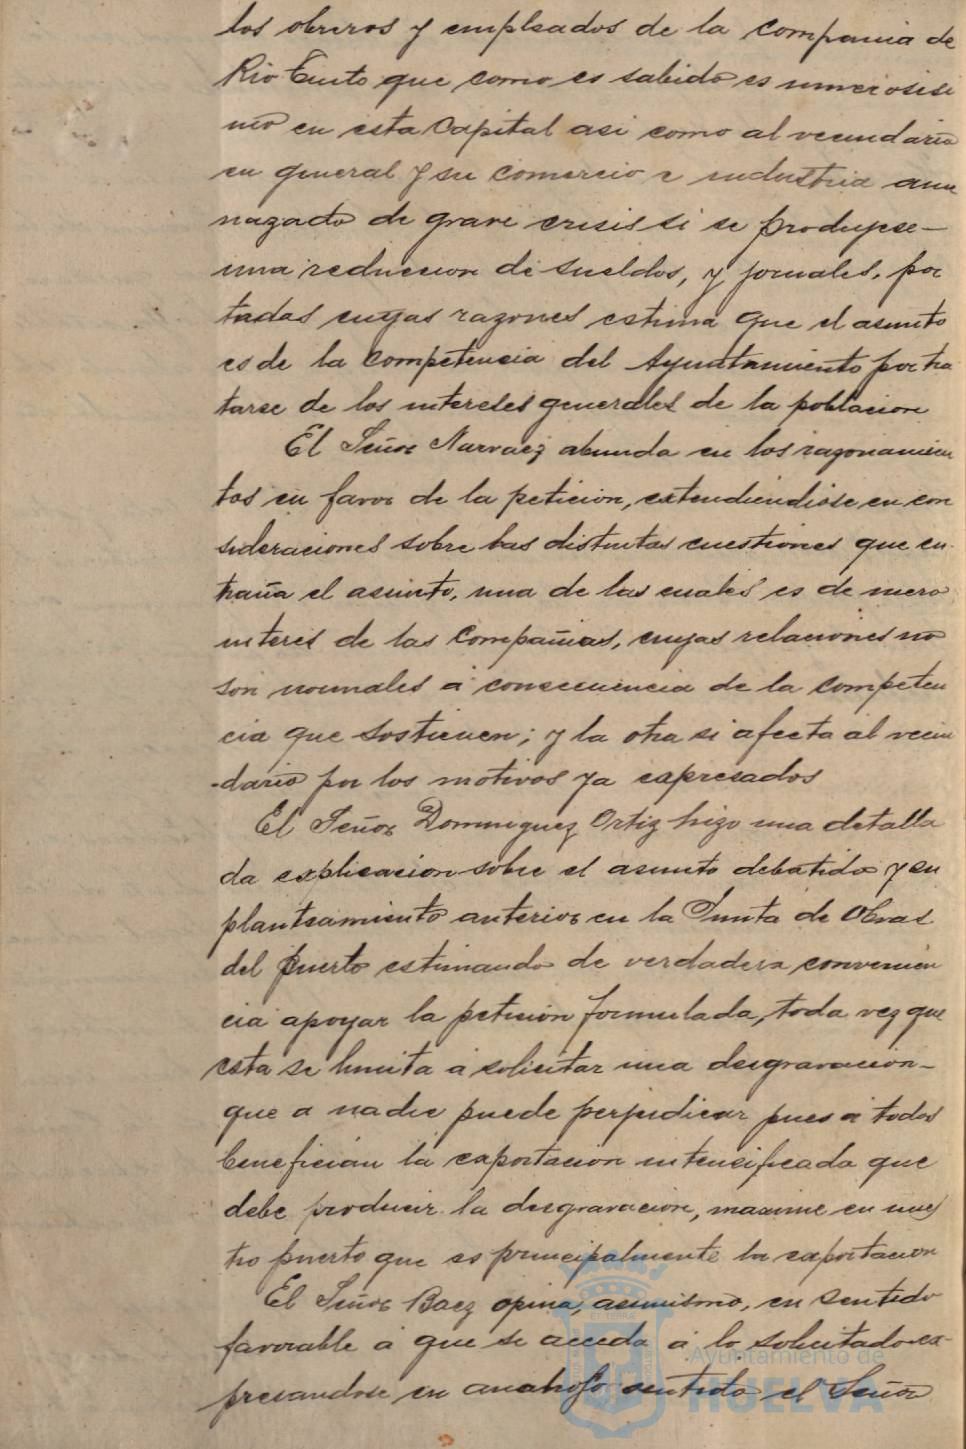 los obreros y empleados de la Compania de
Rio Tinto que como es sabido es numerosisi
mo en esta Capital asi como al vecindario
en general y su comercio e industria ame
nazado de grave crisis si se produjese—
una reduccion de sueldos, y jornales, por
todas cuyas razones estima que el asunto
es de la competencia del Ayuntamiento por tra
tarse de los intereses generales de la poblacion
El Señor Narvaez abunda en los razonamien
tos en favor de la peticion, extendiendose en con
sideraciones sobre las distintas cuestiones que en-
traña el asunto, una de las cuales es de mero
interes de las Compañias, cuyas relaciones no
son normales á consecuencia de la competen
cia que sostienen; y la otra si afecta al vecin
-dario por los motivos ya expresados
El Señor Dominguez Ortiz hizo una detalla
da explicacion sobre el asunto debatido y su
planteamiento anterior en la Junta de Obras
del puerto estimando de verdadera convenien
cia apoyar la peticion formulada, toda vez que
esta se limita á solicitar una desgravacion—
que a nadie puede perjudicar pues á todos
benefician la exportacion intensificada que
debe producir la desgravacion, maxime en nues
tro puerto que es principalmente la exportacion
El Señor Baez opina, asimismo, en sentido
favorable á que se acceda á lo solicitado ex-
presandose en analogo sentido el Señor
Ayuntamiento de
HUELVA